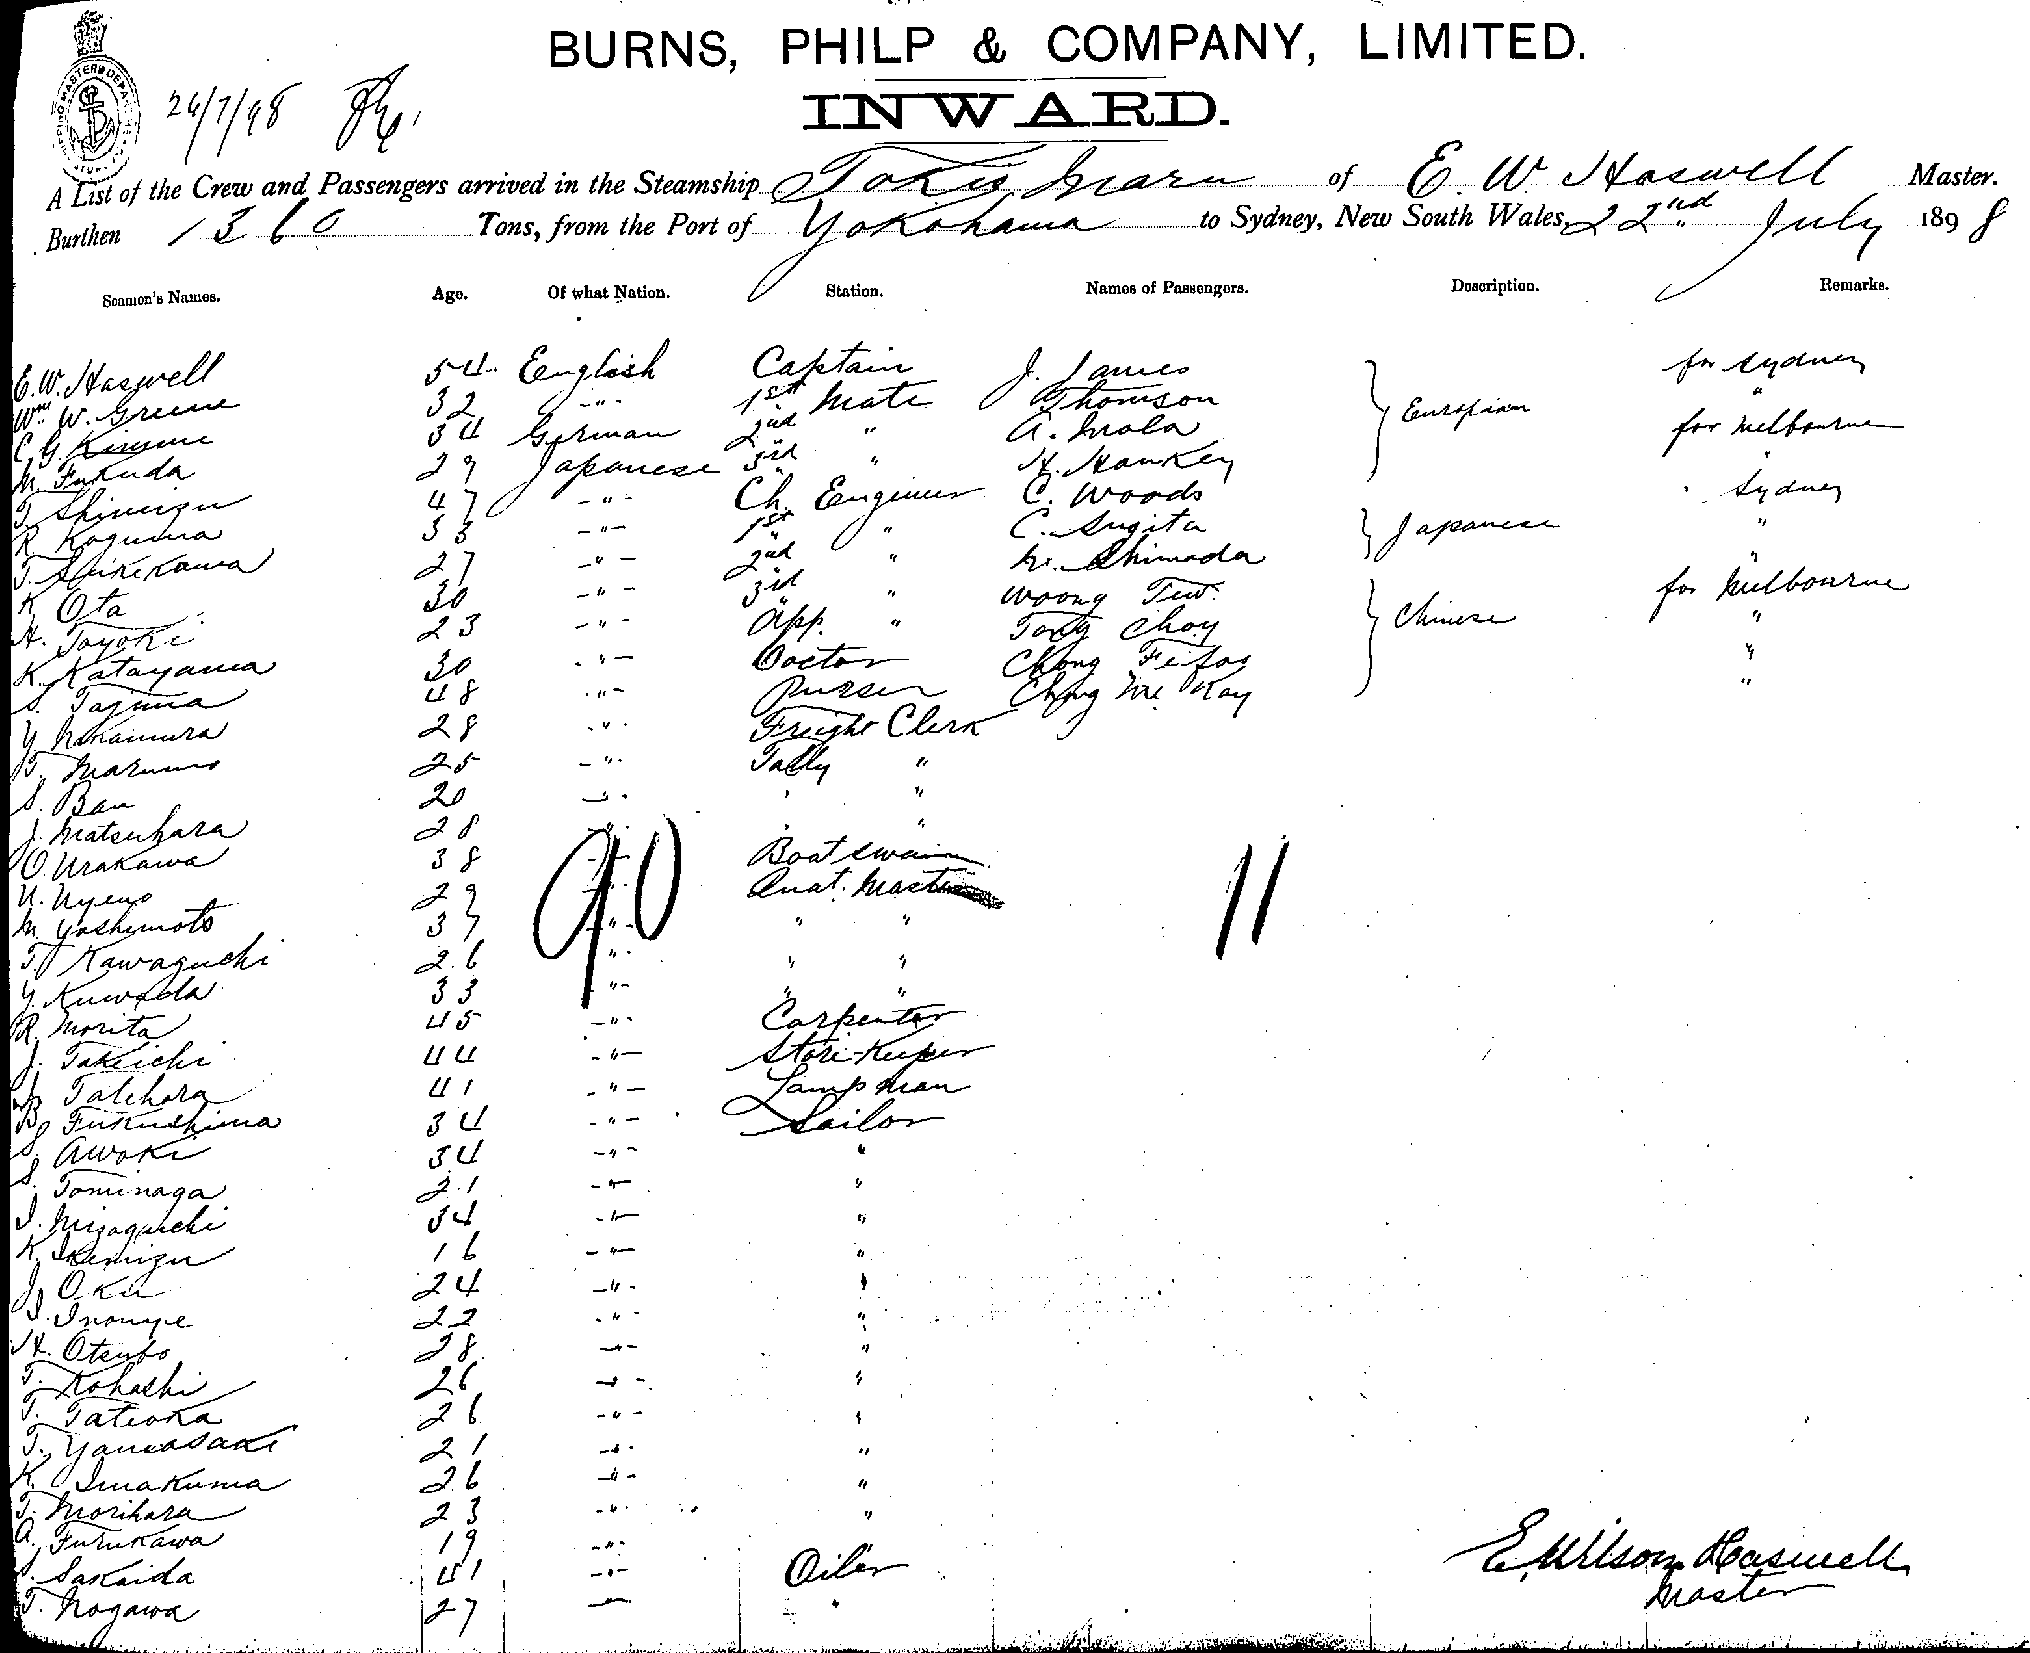 BURNS, PHILP & COMPANY, LIMITED.
INWARD.
26/7/98
A List of the Crew and Passengers arrived in the Steamship Tokio Maru of E. W. Haswell Master.
Burthen 1360 Tons, from the Port of Yokohama to Sydney, New South Wales, 22nd July 1898
Seamen's Names. Age. Of what Nation. Station. Names of Passengers. Description. Remarks.
E. W. Haswell 54 English Captain J. James for Sydney
Wm W. Greene 32 " 1st Mate Thomson European "
C. G. 34 German 2nd " A. Mola for Melbourne
M. Fukuda 29 Japanese 3rd " H. Hankey "
T. Shimizu 47 " Ch. Engineer C. Woods Sydney
R. Koguma 33 " 1st " C. Sugita Japanese "
T. 27 " 2nd " Shimada "
K. Ota 30 " 3rd " Woong Tew. for Melbourne
H. Toyoki 23 " App. " Tong Choy Chinese "
K. Katayama 30 " Doctor Chong "
S. Tajima 48 " Purser Chong Kay "
Y. Nakamura 28 " Freight Clerk
T. Marumo 25 " Tally "
S. Ban 20 " " "
J. Matsuhara 28 " " "
O. Urakawa 38 " Boatswain
U. Uyeno 29 " Quat. Master
M. Yoshimoto 37 " " "
T. Kawaguchi 26 " " "
Y. Kuwada 33 " " "
90 11
R. Morita 45 " Carpenter
J. Takeichi 44 " Store-Keeper
Tatehara 41 " Lampman
B. Fukushima 34 " Sailor
S. Awoki 34 " "
S. Tominaga 21 " "
I. Mizoguchi 34 " "
K. Shimizu 16 " "
J. Oku 24 " "
I. Inouye 22 " "
H. Otsubo 28 " "
T. Kohashi 26 " "
T. Tateoka 26 " "
T. Yamasaki 21 " "
K. Imakuma 26 " "
T. Morihara 23 " "
A. Furukawa 19 "
S. Sakaida 41 " Oiler
T. Nogawa 27 "
E. Wilson Haswell
Master